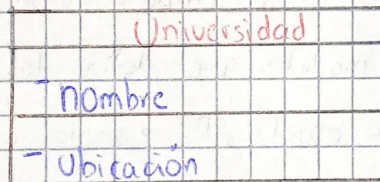 Universidad
- nombre
- Ubicación